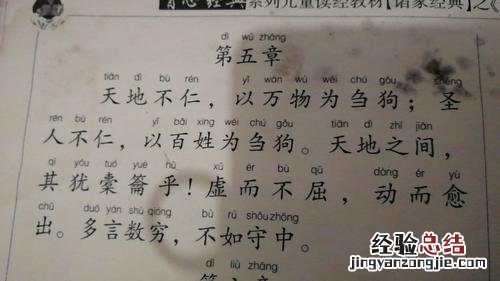 系列儿童读经教材【诸家经典】之《
dì wǔ zhāng
第五章
tiān dì bù rén yǐ wàn wù wéi chú gǒu shèng
天地不仁，以万物为刍狗；圣
rén bù rén yǐ bǎi xìng wéi chú gǒu tiān dì zhī jiān
人不仁，以百姓为刍狗。天地之间，
qí yóu tuó yuè hū xū ér bù qū dòng ér yù
其犹橐籥乎！虚而不屈，动而愈
chū duō yán shù qióng bù rú shǒu zhōng
出。多言数穷，不如守中。
dì liù zhāng
经验总结
jingyanzongjie.com